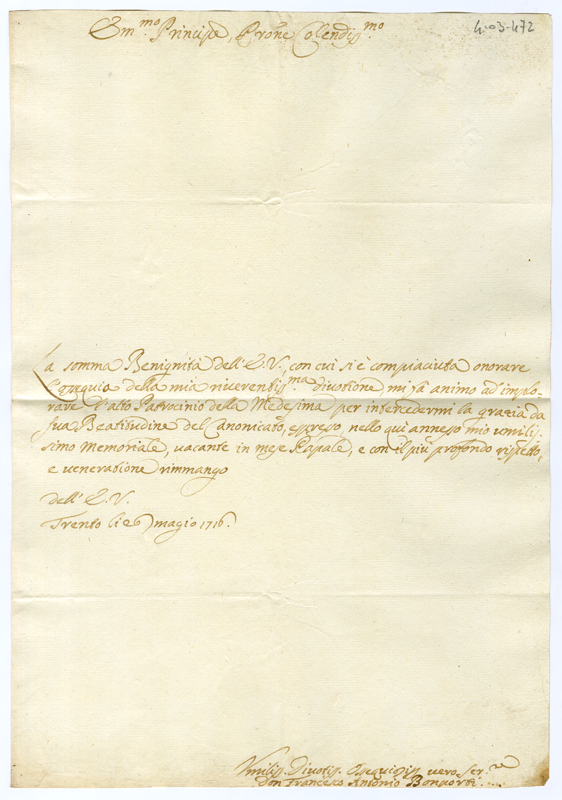 Em.mo Principe, Prone Colendiss.mo
La somma Benignità dell'E.V., con cui si è compiaciuta onorare
l'ossequio della mia riverentiss.ma divotione, mi fà animo ad implo-
rare l'alto Patrocinio della Medesima per intercedermi la grazia da
sua Beatitudine del Canonicato, espresso nello qui annesso mio umilis-
simo Memoriale, vacante in mese Papale, e con il più profondo rispetto,
e veneratione rimmango
dell'E.V.
Trento li 26 magio 1716.
Umiliss. Divotiss. Ossequiosiss. vero Ser.re
Don Francesco Antonio Bonporti